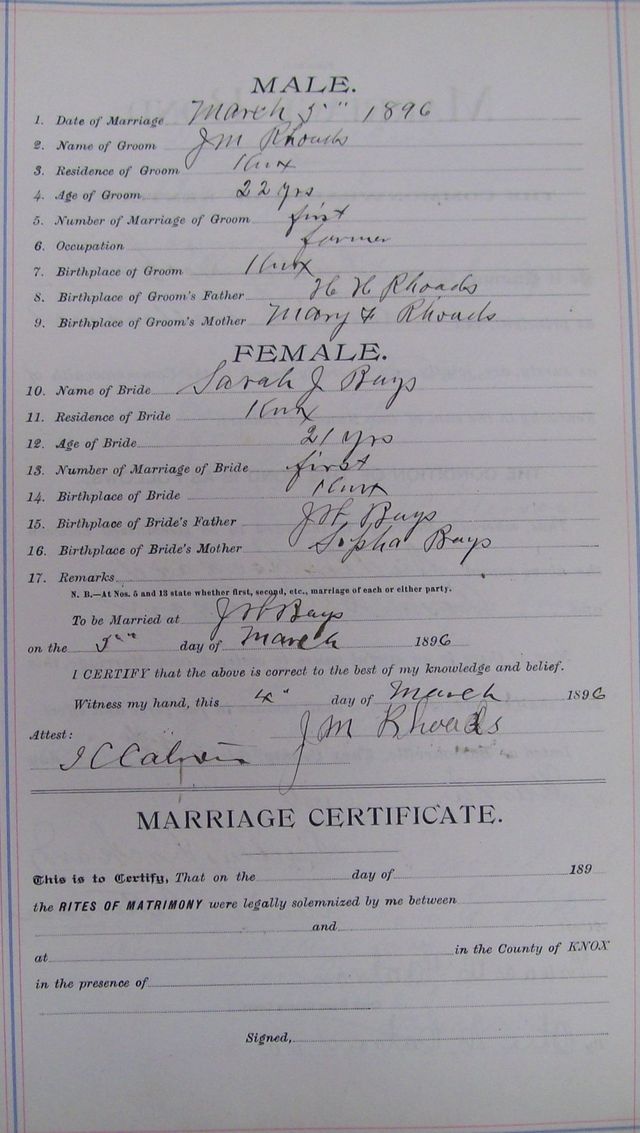 MALE.
1. Date of Marriage March 5" 1896
2. Name of Groom J M Rhoads
3. Residence of Groom Knox
4. Age of Groom 22 yrs
5. Number of Marriage of Groom first
6. Occupation farmer
7. Birthplace of Groom Knox
8. Birthplace of Groom's Father H H Rhoads
9. Birthplace of Groom's Mother Mary F Rhoads
FEMALE.
10. Name of Bride Sarah J Bays
11. Residence of Bride Knox
12. Age of Bride 21 yrs
13. Number of Marriage of Bride first
14. Birthplace of Bride Knox
15. Birthplace of Bride's Father J W Bays
16. Birthplace of Bride's Mother Sopha Bays
17. Remarks
N. B.—At Nos. 5 and 13 state whether first, second, etc., marriage of each or either party.
To be Married at J W Bays
on the 5" day of March 1896
I CERTIFY that the above is correct to the best of my knowledge and belief.
Witness my hand, this 4" day of March 1896
J M Rhoads
Attest:
MARRIAGE CERTIFICATE.
This is to Certify, That on the day of 189
the RITES OF MATRIMONY were legally solemnized by me between
and
at in the County of KNOX
in the presence of
Signed,